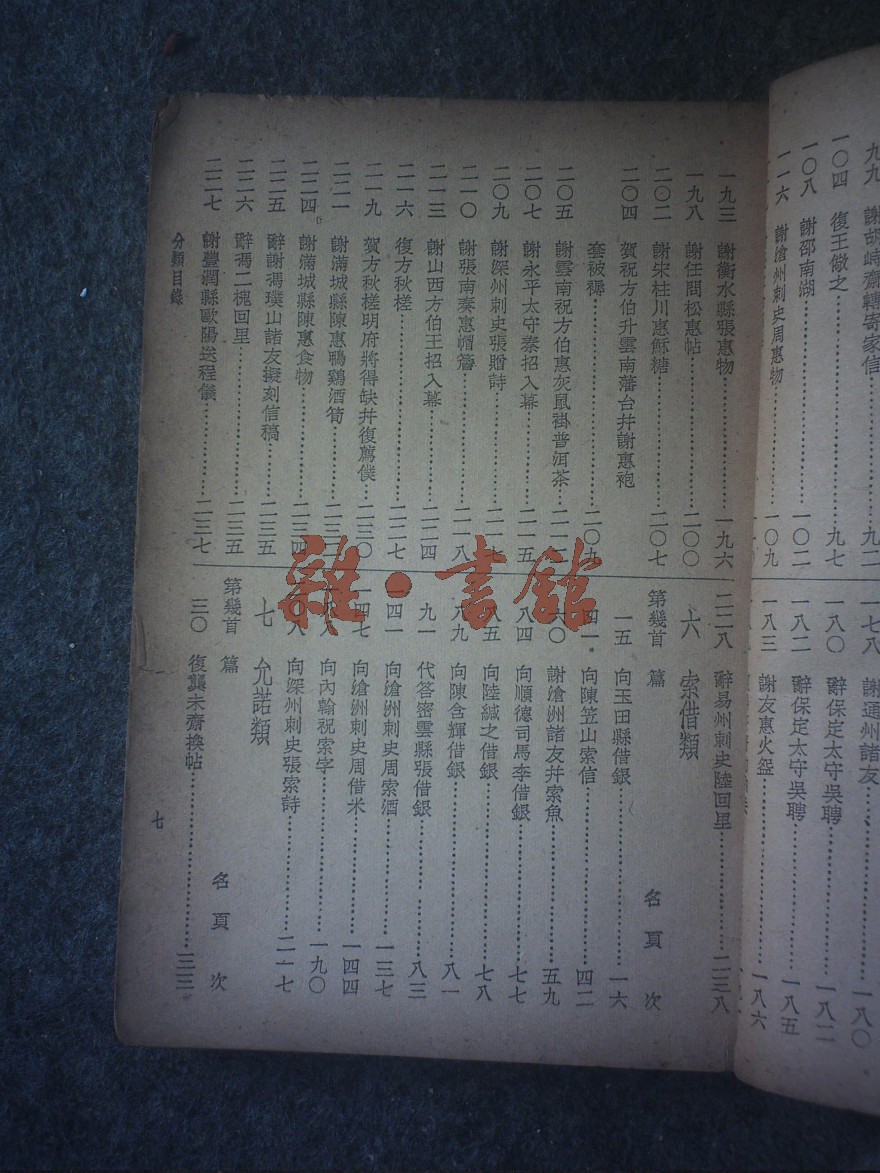 九九 謝胡峙齋轉寄家信……九二
一〇四 復王儆之……九七
一〇八 謝邵南湖……一〇二
一一六 謝滄州刺史周惠物……一〇九
一七八 謝通州諸友……一八〇
一八〇 辭保定太守吳聘……一八二
一八二 辭保定太守吳聘……一八五
一八三 謝友惠火盌……一八六
一九三 謝衡水縣張惠物……一九六
一九八 謝任問松惠帖……二〇〇
二〇二 謝朱桂川惠穌糖……二〇七
二〇四 賀祝方伯升雲南藩台幷謝惠袍
套被褥……二〇九
二〇五 謝雲南祝方伯惠灰鼠褂普洱茶
二〇七 謝永平太守泰招入幕……二一五
二〇九 謝深州刺史張贈詩
二一〇 謝張南奏惠帽簷……二一八
二一三 謝山西方伯王招入幕……二二四
二一六 復方秋槎……二二七
二一九 賀方秋槎明府將得缺幷復薦僕……二三〇
二二一 謝滿城縣陳惠鴨鷄酒筍
二二四 謝滿城縣陳惠食物……二三四
二二五 辭謝馮璞山諸友擬刻信稿……二三五
二二六 辭馮二槐回里……二三五
二二七 謝豐潤縣歐陽送程儀……二三七
二二八 辭易州刺史陸回里……二三八
六 索借類
第幾首 篇 名 頁 次
一五 向玉田縣借銀……一六
四一 向陳笠山索信……四二
六〇 謝滄洲諸友幷索魚……五九
八四 向順德司馬李借銀……七七
八五 向陸緘之借銀……七八
八九 向陳含輝借銀……八一
九一 代答密雲縣張借銀……八三
一四一 向滄洲刺史周索酒……一三七
一四七 向滄洲刺史周借米……一四四
向內翰祝索字……一九〇
二〇八 向深州刺史張索詩……二一七
七 允諾類
第幾首 篇 名 頁 次
三〇 復龔未齋換帖……三三
分類目錄
七
雜·書館